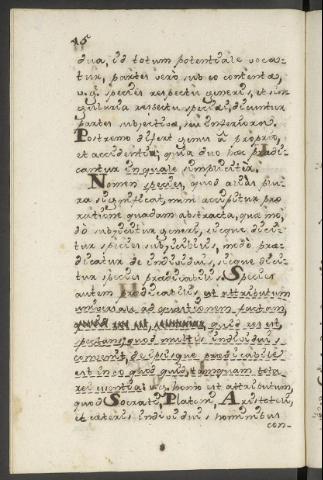 dua, id totum potentiale voca-
tur, partes vero sub eo contentæ,
v. g. species respectu generis, et sin-
gularia respectu speciei, dicuntur
partes subjectivæ, seu inferiores.
Postremo differt genus à proprio,
et accidenti; quia duo hæc prædi-
cantur in quale simpliciter.
Nomen species, quod aliàs plu-
ra significat, nunc accipitur pro
ratione quadam abstracta, quæ mo-
do subjicitur generi, sicque dici-
tur species subjicibilis, modo præ-
dicatur de individuis, sicque dici-
tur species prædicabilis. Species
autem prædicabilis est attributum
universale ad quæstionem factam,
quid res est,
spectans, quod multis individuis
convenit, de ipsisque prædicabile
est in eo quod quid, tamquam tota
rei essentia: v. g. homo est attributum,
quod Socrati, Platoni, Aristoteli,
et cæteris individuis hominibus
con-